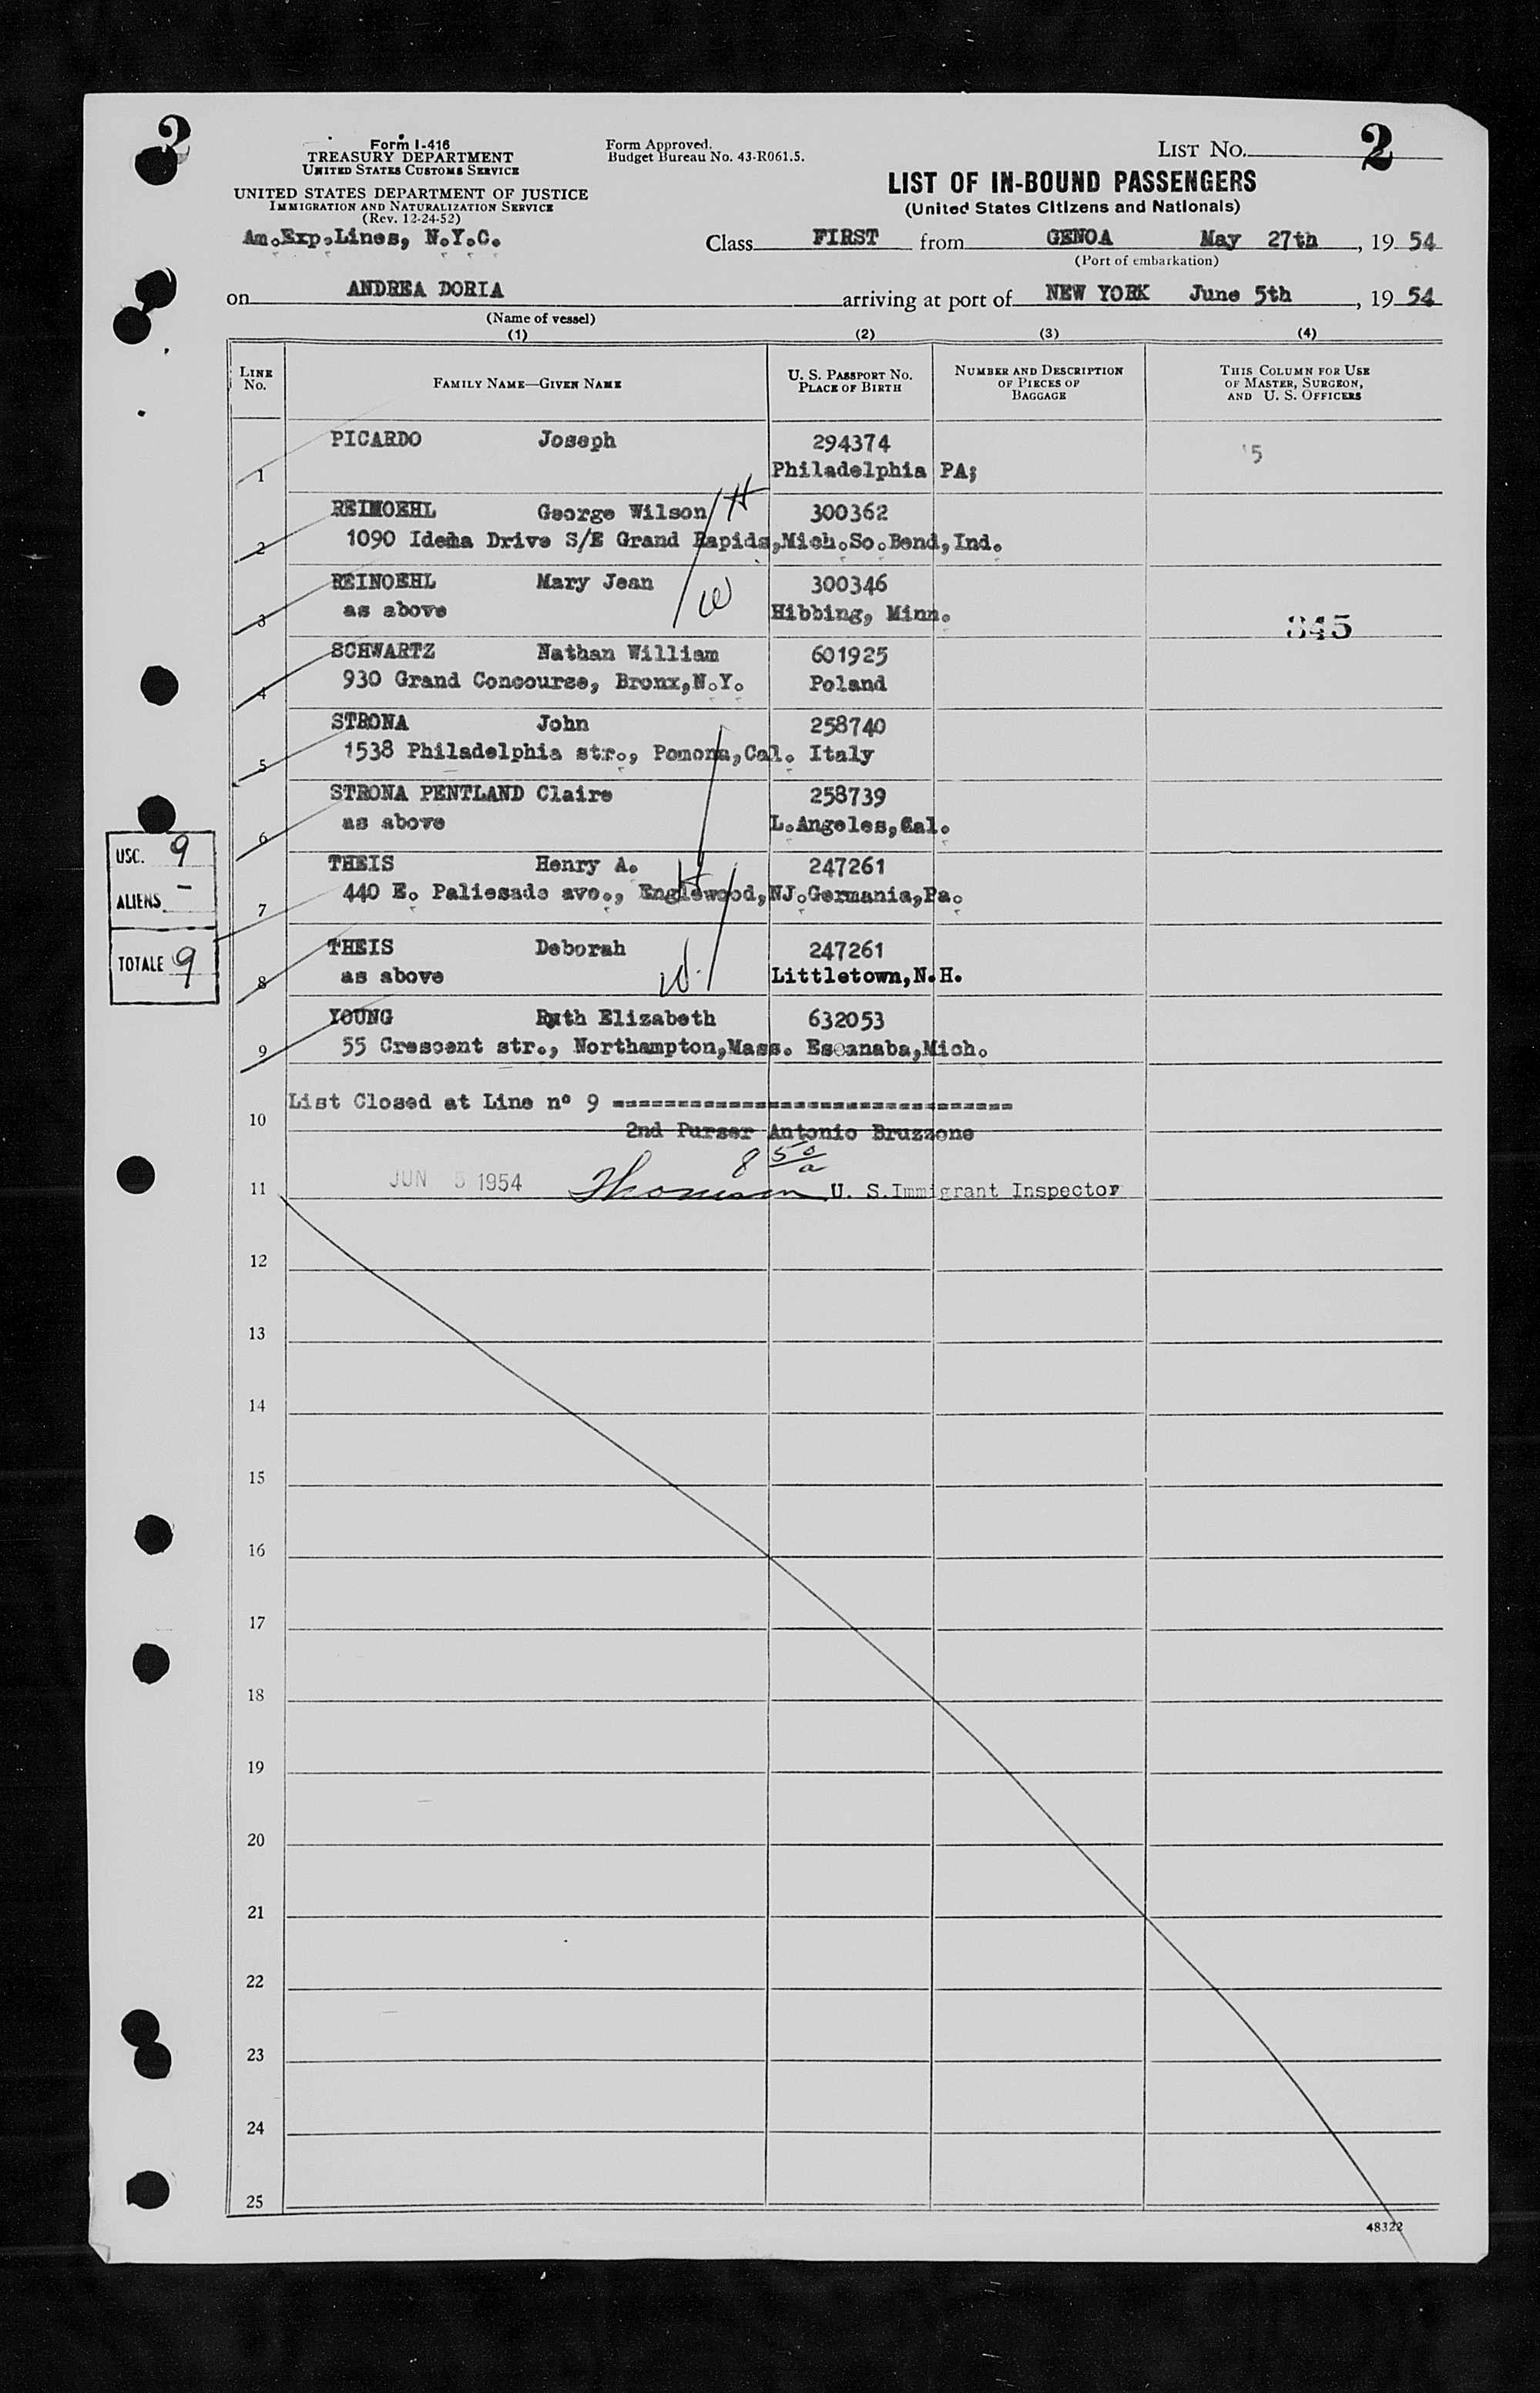 2
Form I-416
TREASURY DEPARTMENT
UNITED STATES CUSTOMS SERVICE
UNITED STATES DEPARTMENT OF JUSTICE
IMMIGRATION AND NATURALIZATION SERVICE
(Rev. 12-24-52)
Form Approved.
Budget Bureau No. 43-R061.5.
LIST NO. 2
LIST OF IN-BOUND PASSENGERS
(United States Citizens and Nationals)
Am.Exp.Lines, N.Y.C.
Class FIRST from GENOA May 27th, 19 54
(Port of embarkation)
on ANDREA DORIA arriving at port of NEW YORK June 5th, 19 54
(Name of vessel)
(1) (2) (3) (4)
LINE No. FAMILY NAME—GIVEN NAME U. S. PASSPORT NO. PLACE OF BIRTH NUMBER AND DESCRIPTION OF PIECES OF BAGGAGE THIS COLUMN FOR USE OF MASTER, SURGEON, AND U. S. OFFICERS
PICARDO Joseph 294374 5
1 Philadelphia PA;
REINOEHL George Wilson H 300362
2 1090 Idema Drive S/E Grand Rapids,Mich.So.Bend,Ind.
REINOEHL Mary Jean W 300346
3 as above Hibbing, Minn.
345
SCHWARTZ Nathan William 601925
4 930 Grand Concourse, Bronx,N.Y. Poland
STRONA John 258740
5 1538 Philadelphia str., Pomona,Cal. Italy
STRONA PENTLAND Claire 258739
6 as above L.Angeles,Cal.
THEIS Henry A. H 247261
7 440 E. Paliesade ave., Englewood,NJ.Germania,Pa.
THEIS Deborah 247261
8 as above W. Littletown,N.H.
YOUNG Ruth Elizabeth 632053
9 55 Crescent str., Northampton,Mass. Escanaba,Mich.
USC. 9
ALIENS –
TOTALE 9
10 List Closed at Line n° 9 ================================
2nd Purser Antonio Bruzzone
8 50/a
11 JUN 5 1954 U. S.Immigrant Inspector
12
13
14
15
16
17
18
19
20
21
22
23
24
25
48322